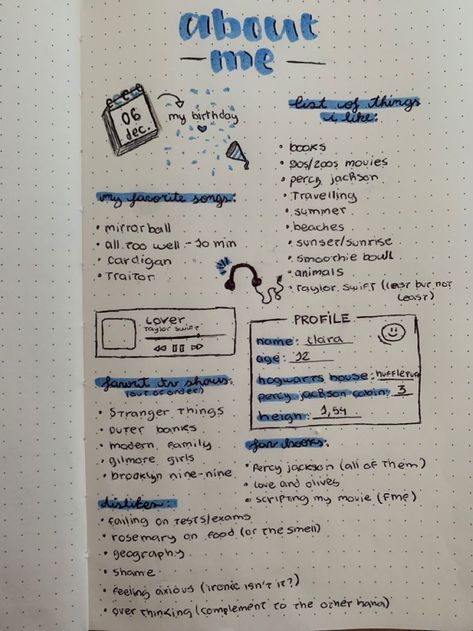 about
-me-
06
dec.
my birthday
list of things
i like:
• books
• 90s/200s movies
• percy jackson
• Travelling
• summer
• beaches
• sunset/sunrise
• smoothie bowl
• animals
• Taylor swift (least but not
least)
my favorite songs:
• mirrorball
• all too well - 10 min
• cardigan
• Traitor
Lover
Taylor swift
PROFILE
name: clara
age: 12
hogwarts house: hufflepuff
percy jackson cabin: 3
heigh: 1,54
favorit tv shows:
(out of order)
• Stranger Things
• outer banks
• modern family
• gilmore girls
• brooklyn nine-nine
fav books:
• Percy jackson (all of them)
• love and olives
• scripting my movie (fmp)
dislikes:
• failing on tests/exams
• rosemary on food (or the smell)
• geography
• shame
• feeling axious (ironic isn't it?)
• over thinking (complement to the other hand)